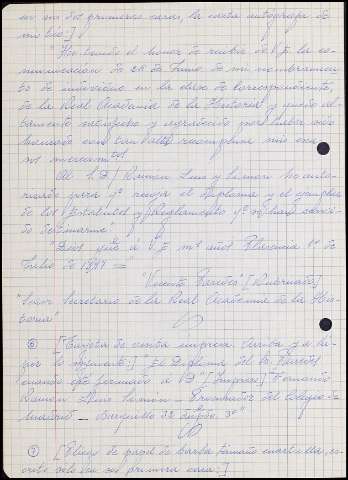 en sus dos primeras caras, la carta autógrafa de
su tío:]
"He tenido el honor de recibir de V.S. la co-
municación de 28 de Junio de mi nombramien-
to de individuo en la clase de Correspondiente,
de la Real Academia de la Historia y quedo al-
tamente satisfecho y agradecido por haber sido
honrado con tan alta recompensa mis esca-
sos merecimientos.
Al S. D. Ramón Luis y Simón he auto-
rizado para qe recoja el Diploma y el ejemplar
de los Estatutos y Reglamento qe se han servi-
do destinarme"
"Dios gue a V.S. ms años Plasencia 1º de
Julio de 1889 ="
"Vicente Paredes" [Rubricado]
"Señor Secretario de la Real Academia de la His-
toria"
⑥ [Tarjeta de visita impresa. Arriba y a lá-
piz lo siguiente:] "El Diploma del Sr. Paredes
cuando esté firmado a D" [Impreso:] "Fernando
Ramón Luis Simón - Procurador del Colegio de
Madrid - Barquillo 32 duplicº 3º"
⑦ [Pliego de papel de barba tamaño cuartilla, es-
crito solo en su primera cara:]